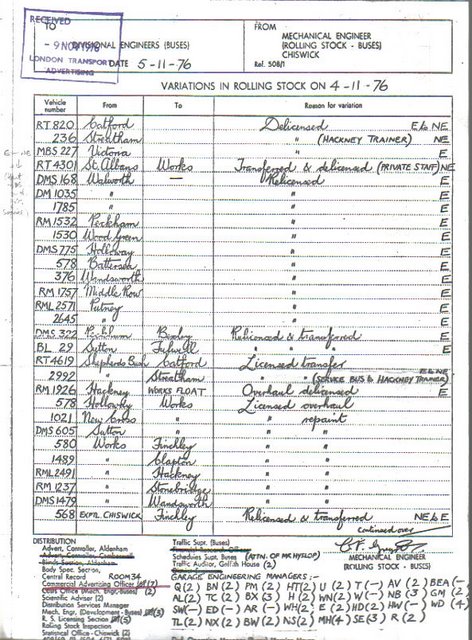 RECEIVED
- 9 NOV 1976
LONDON TRANSPORT
ADVERTISING
TO
DIVISIONAL ENGINEERS (BUSES)
DATE 5-11-76
FROM
MECHANICAL ENGINEER
(ROLLING STOCK - BUSES)
CHISWICK
Ref. 508/1
VARIATIONS IN ROLLING STOCK ON 4-11-76
Vehicle number From To Reason for variation
RT 820 Catford Delicensed E to NE
236 Streatham " (HACKNEY TRAINER) NE
MBS 227 Victoria " E
RT 4301 St. Albans Works Transferred & delicensed (PRIVATE STAFF) NE
DMS 168 Walworth — Relicensed E
DM 1035 " " E
1785 " " E
RM 1532 Peckham " E
1530 Wood Green " E
DMS 775 Holloway " E
578 Battersea " E
376 Wandsworth " E
RM 1757 Middle Row " E
RML 2571 Putney " E
2645 " " E
DMS 322 Bexley Relicensed & transferred E
BL 29 Sutton Fulwell " " " E
RT 4619 Shepherds Bush Catford Licensed transfer
2992 " Streatham " " (SERVICE BUS & HACKNEY TRAINER) E & NE
RM 1926 Hackney WORKS FLOAT Overhaul delicensed E
578 Holloway Works Licensed overhaul
1021 New Cross " " repaint
DMS 605 Sutton " " "
580 Works Finchley " "
1489 " Clapton " "
RML 2491 " Hackney " "
RM 1237 " Stonebridge " "
DMS 1479 " Wandsworth " "
568 EXPTL CHISWICK Finchley Relicensed & transferred NE to E
continued over
DISTRIBUTION
Advert. Controller, Aldenham
Body Spec. Section
Central Record ROOM 34
Commercial Advertising Officer
Scientific Adviser (2)
Distribution Services Manager
Mech. Engr. (Development - Buses)
R. S. Licensing Section
Rolling Stock Inspection
Statistical Office - Chiswick (2)
Traffic Supt. (Buses)
Schedules Supt. Buses (ATTN. OF MR HYSLOP)
Traffic Auditor, Golfish House (2)
MECHANICAL ENGINEER
(ROLLING STOCK - BUSES)
GARAGE ENGINEERING MANAGERS :-
Q (2) BN (2) PM (2) HT (2) U (2) T (-) AV (2) BEA (-)
AL (2) TC (2) BX (2) H (2) WN (2) W (-) NB (3) GM (2)
SW (-) ED (-) AR (-) WH (2) E (2) HD (2) HW (-) WD (4)
TL (2) NX (2) BW (2) NS (2) MH (4) SE (3) R (2)